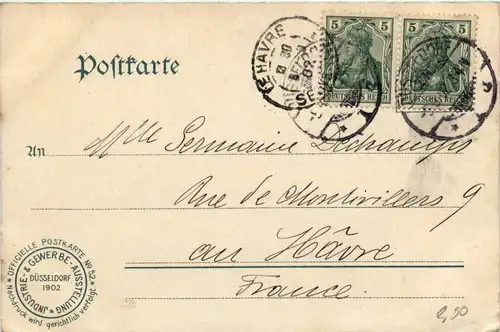 5 5
5 5
DEUTSCHES REICH DEUTSCHES REICH
LE HAVRE
DÜSSELDORF
Postkarte
An
Mlle Germaine Dechamps
Rue de Montivilliers 9
au Hâvre
France.
* OFFICIELLE POSTKARTE No 52 *
Nachdruck wird gerichtlich verfolgt
INDUSTRIE- & GEWERBE-AUSSTELLUNG
DÜSSELDORF
1902
2,50